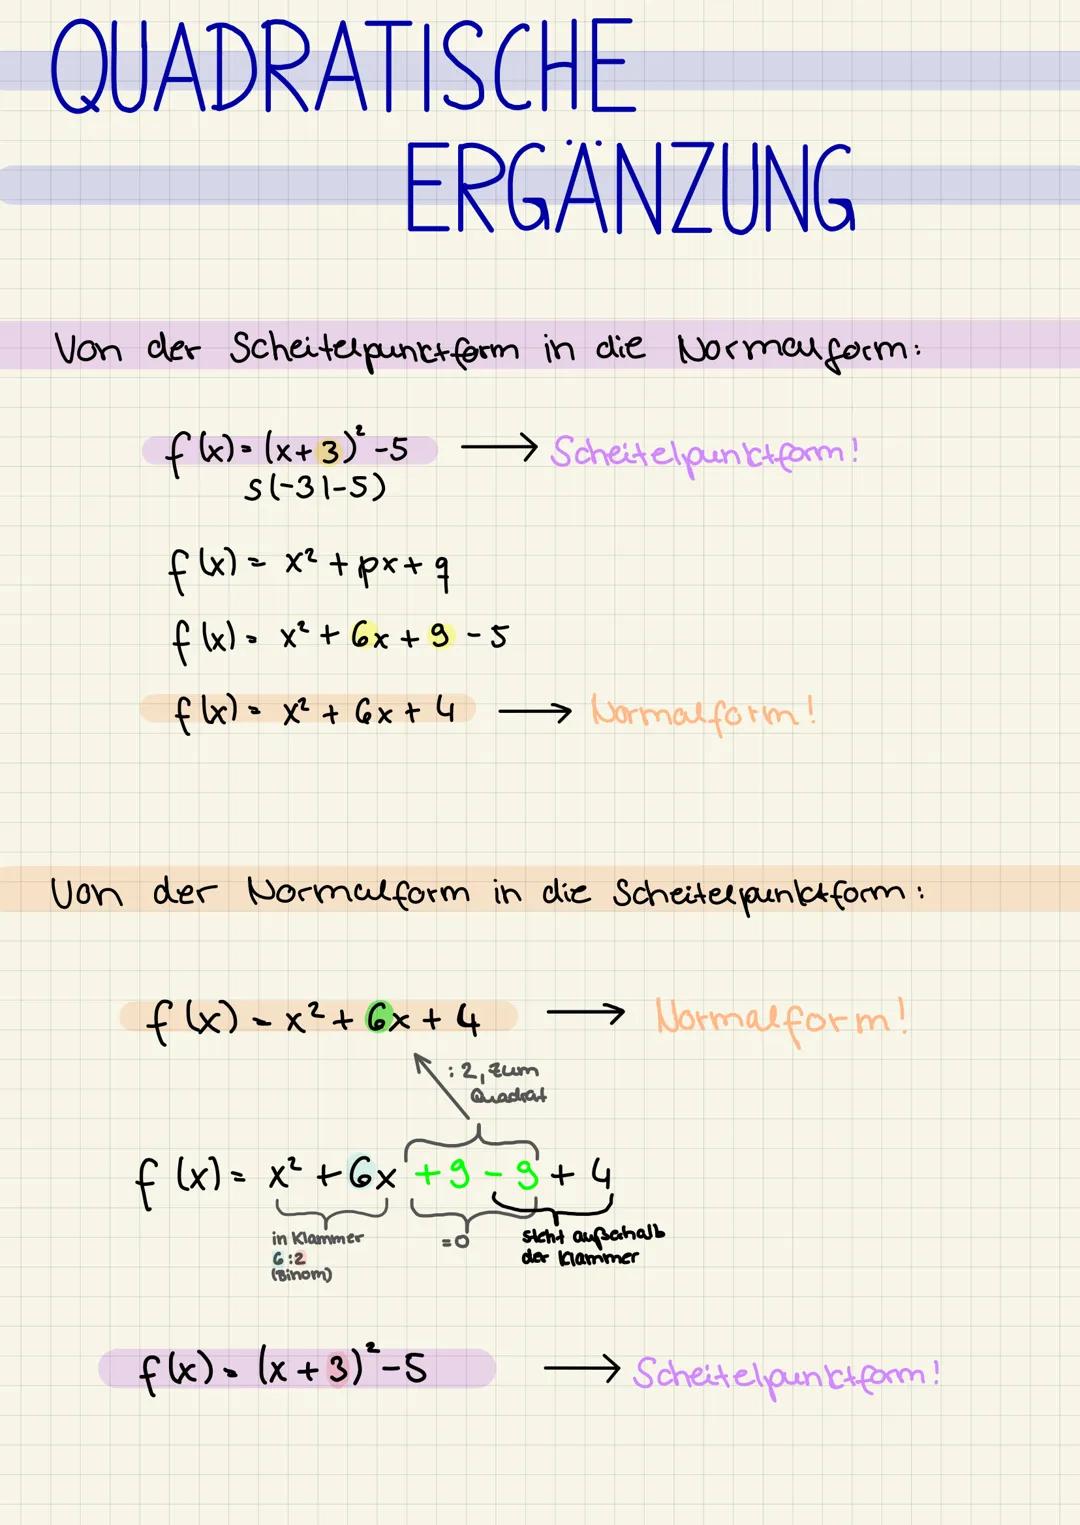 QUADRATISCHE
ERGÄNZUNG
Von der Scheitelpunktform in die Normalform:
f(x) = (x+3)² -5 → Scheitelpunktform!
S(-3|-5)
f(x) = x² + px + q
f(x) = x² + 6x + 9 - 5
f(x) = x² + 6x + 4 → Normalform!
Von der Normalform in die Scheitelpunktform:
f(x) = x² + 6x + 4 → Normalform!
: 2, zum
Quadrat
f(x) = x² + 6x + 9 - 9 + 4
in Klammer
6:2
(Binom)
=0
steht außerhalb
der Klammer
f(x) = (x+3)² -5 → Scheitelpunktform!